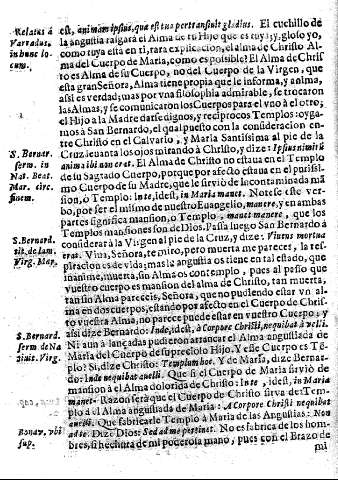 Relatus à
Varradas,
in hunc lo-
cum.
S. Bernar.
serm. in
Nat. Beat.
Mar. circ.
finem.
S. Bernard.
tit. de lam.
Virg. Mar.
S. Bernard
serm de Na
tivit. Virg.
Bonav. vbi
sup.
est, animam ipsius, qua est tua pertransivit gladius. El cuchillo de
la angustia rasgarà el Alma de tu Hijo que es tuya; y gloso yo,
como tuya està en ti, rara explicacion, el alma de Christo Al-
ma del Cuerpo de Maria, como es posible? El Alma de Christo
es Alma de su Cuerpo, no del Cuerpo de la Virgen, que
esta gran Señora, Alma tiene propia que le informa, y anima,
assi es verdad; mas por vna filosophia admirable, se trocaron
las Almas, y se comunicaron los Cuerpos para el vno à el otro;
el Hijo à la Madre darse dignos, y reciprocos Templos: oyga-
mos à San Bernardo, el qual puesto con la consideracion en-
tre Christo en el Calvario, y Maria Santissima al pie de la
Cruz levanta los ojos mirando à Christo, y dize: Ipsius nimirum
anima ibi non erat. El Alma de Christo no estava en el Templo
de su Sagrado Cuerpo, porque por afecto estava en el purissi-
mo Cuerpo de su Madre, que le sirviò de Incontaminada ma
sion, ò Templo: Inte, idest, in Maria manet. Notese este ver-
bo, por ser el mismo de nuestro Euangelio, manere, y en ambas
partes significa mansion, ò Templo, manet manere, que los
Templos mansiones son de Dios. Passa luego San Bernardo à
considerar à la Virgen al pie de la Cruz, y dize: Vivens moriens
eras. Viva, Señora, te miro, pero muerta me pareces, la res-
piracion es de vida; mas la angustia os tiene en tal estado, que
inanime, muerta, sin Alma os contemplo, pues al passo que
vuestro cuerpo es mansion del alma de Christo, tan muerta,
tan sin Alma pareceis, Señora, que no pudiendo estar vn al-
ma en dos cuerpos, estando por afecto en el Cuerpo de Chris-
to vuestra Alma, no parece puede estar en vuestro Cuerpo; y
assi dize Bernardo: Inde, idest, à Corpore Christi, nequibat avelli.
Ni aun à lançadas pudieron arrancar el Alma angustiada de
Maria del Cuerpo de su precioso Hijo. Y esse Cuerpo es Tem-
plo? Si, dize Christo: Templum hoc. Y de Maria, dize Bernar-
do: Inde nequibat avelli. Que si el Cuerpo de Maria sirviò de
mansion à el Alma dolorida de Christo: Inte, idest, in Maria
manet. Razon serà que el Cuerpo de Christo sirva de Tem-
plo à el Alma angustiada de Maria: A Corpore Christi nequibat
avelli. Que fabricarle Templo à Maria de las Angustias: Non
aude. Dize Dios: Sed ad me pertinet. No es fabrica de los hom-
bres, si hechura de mi poderosa mano, pues con el Brazo de
mi